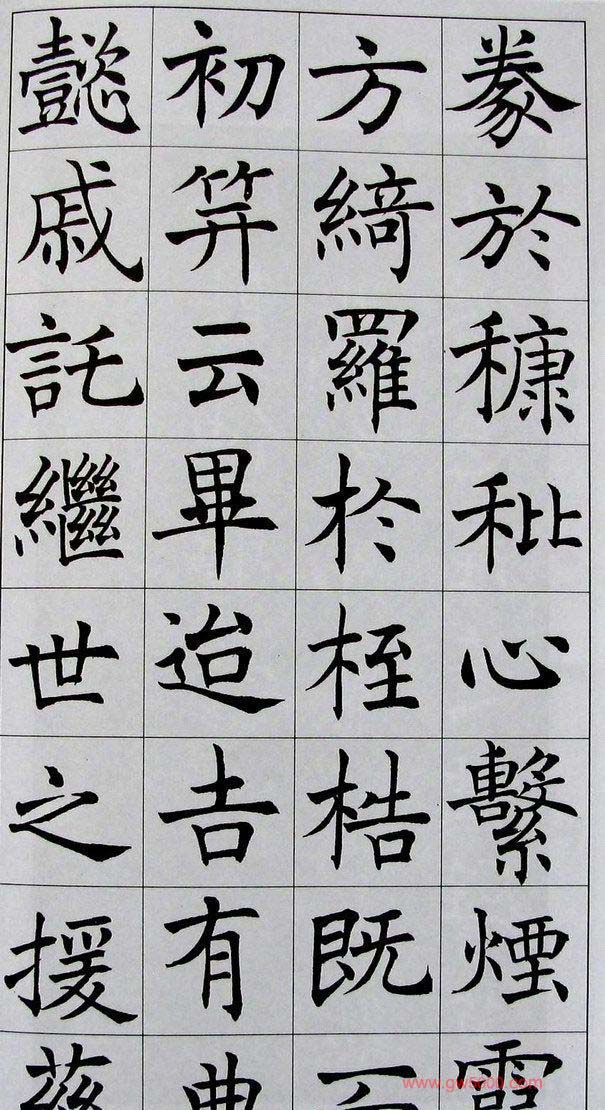 豢於穅秕心繫煙霞
方綺羅於桎梏既
初笄云畢迨吉有典
懿戚託繼世之援茲
www.gw5000.com